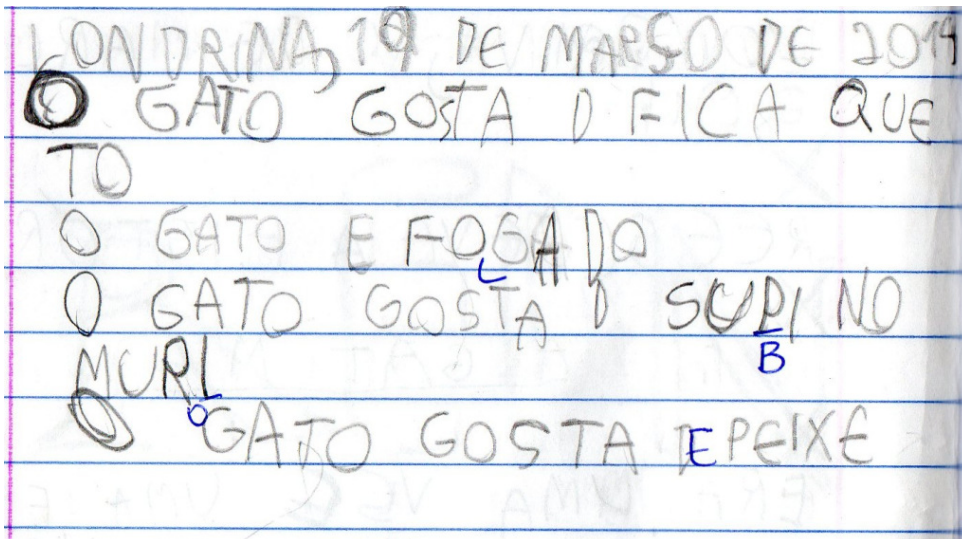 LONDRINA, 19 DE MARSO DE 2019
O GATO GOSTA D FICA QUE
TO
O GATO E FOGADO
L
O GATO GOSTA D SUPI NO
B
MURI
O
O GATO GOSTA DE PEIXE